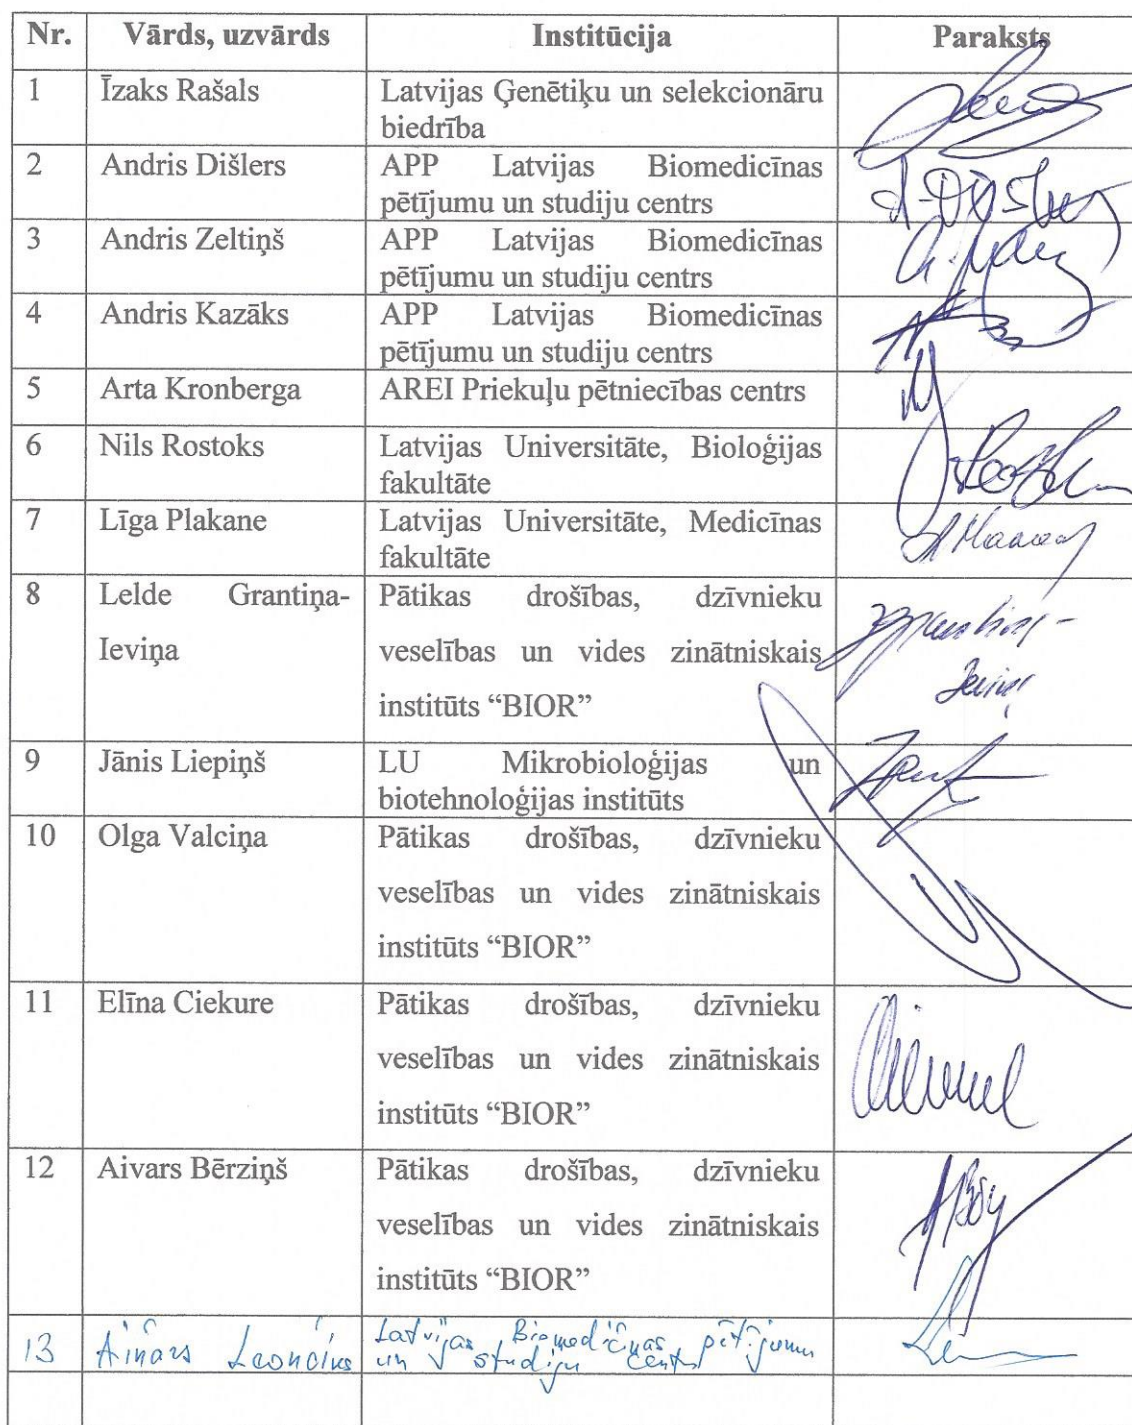 Nr. Vārds, uzvārds Institūcija Paraksts
1 Īzaks Rašals Latvijas Ģenētiķu un selekcionāru
biedrība
2 Andris Dišlers APP Latvijas Biomedicīnas
pētījumu un studiju centrs
3 Andris Zeltiņš APP Latvijas Biomedicīnas
pētījumu un studiju centrs
4 Andris Kazāks APP Latvijas Biomedicīnas
pētījumu un studiju centrs
5 Arta Kronberga AREI Priekuļu pētniecības centrs
6 Nils Rostoks Latvijas Universitāte, Bioloģijas
fakultāte
7 Līga Plakane Latvijas Universitāte, Medicīnas
fakultāte
8 Lelde Grantiņa- Pātikas drošības, dzīvnieku
Ieviņa veselības un vides zinātniskais
institūts “BIOR”
9 Jānis Liepiņš LU Mikrobioloģijas un
biotehnoloģijas institūts
10 Olga Valciņa Pātikas drošības, dzīvnieku
veselības un vides zinātniskais
institūts “BIOR”
11 Elīna Ciekure Pātikas drošības, dzīvnieku
veselības un vides zinātniskais
institūts “BIOR”
12 Aivars Bērziņš Pātikas drošības, dzīvnieku
veselības un vides zinātniskais
institūts “BIOR”
13 Ainārs Leončiks Latvijas Biomedicīnas pētījumu
un studiju centrs